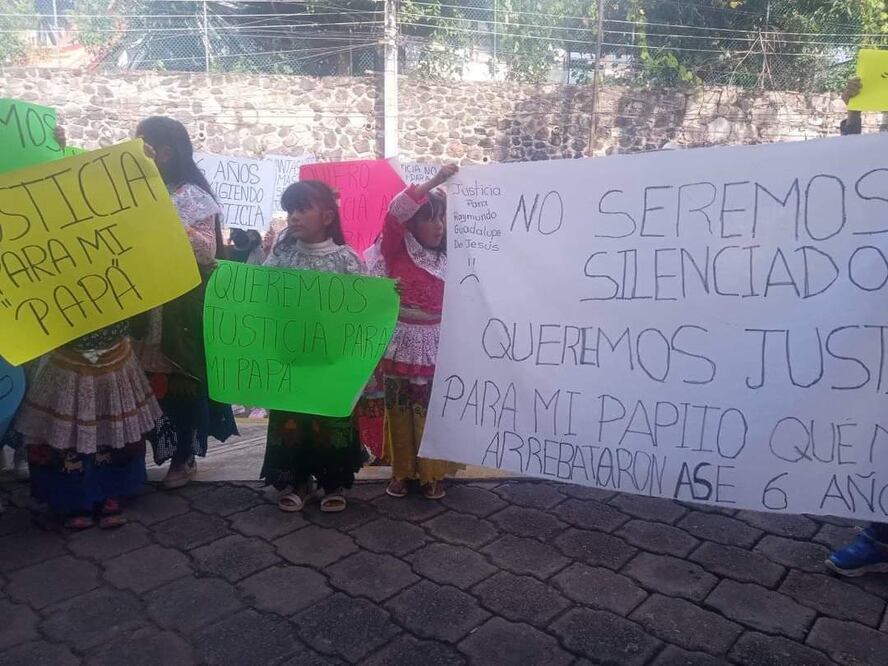 EMOS
JUSTICIA
PARA MI
"PAPÁ
AÑOS
EXIGIENDO
JUSTICIA
QUIERO
JUSTICIA
QUEREMOS
JUSTICIA PARA
MI PAPÁ
Justicia
Para
Raymundo
Guadalupe
De Jesús
!!
NO SEREMOS
SILENCIADO
QUEREMOS JUST
PARA MI PAPIIO QUE N
ARREBATARON ASE 6 AÑO